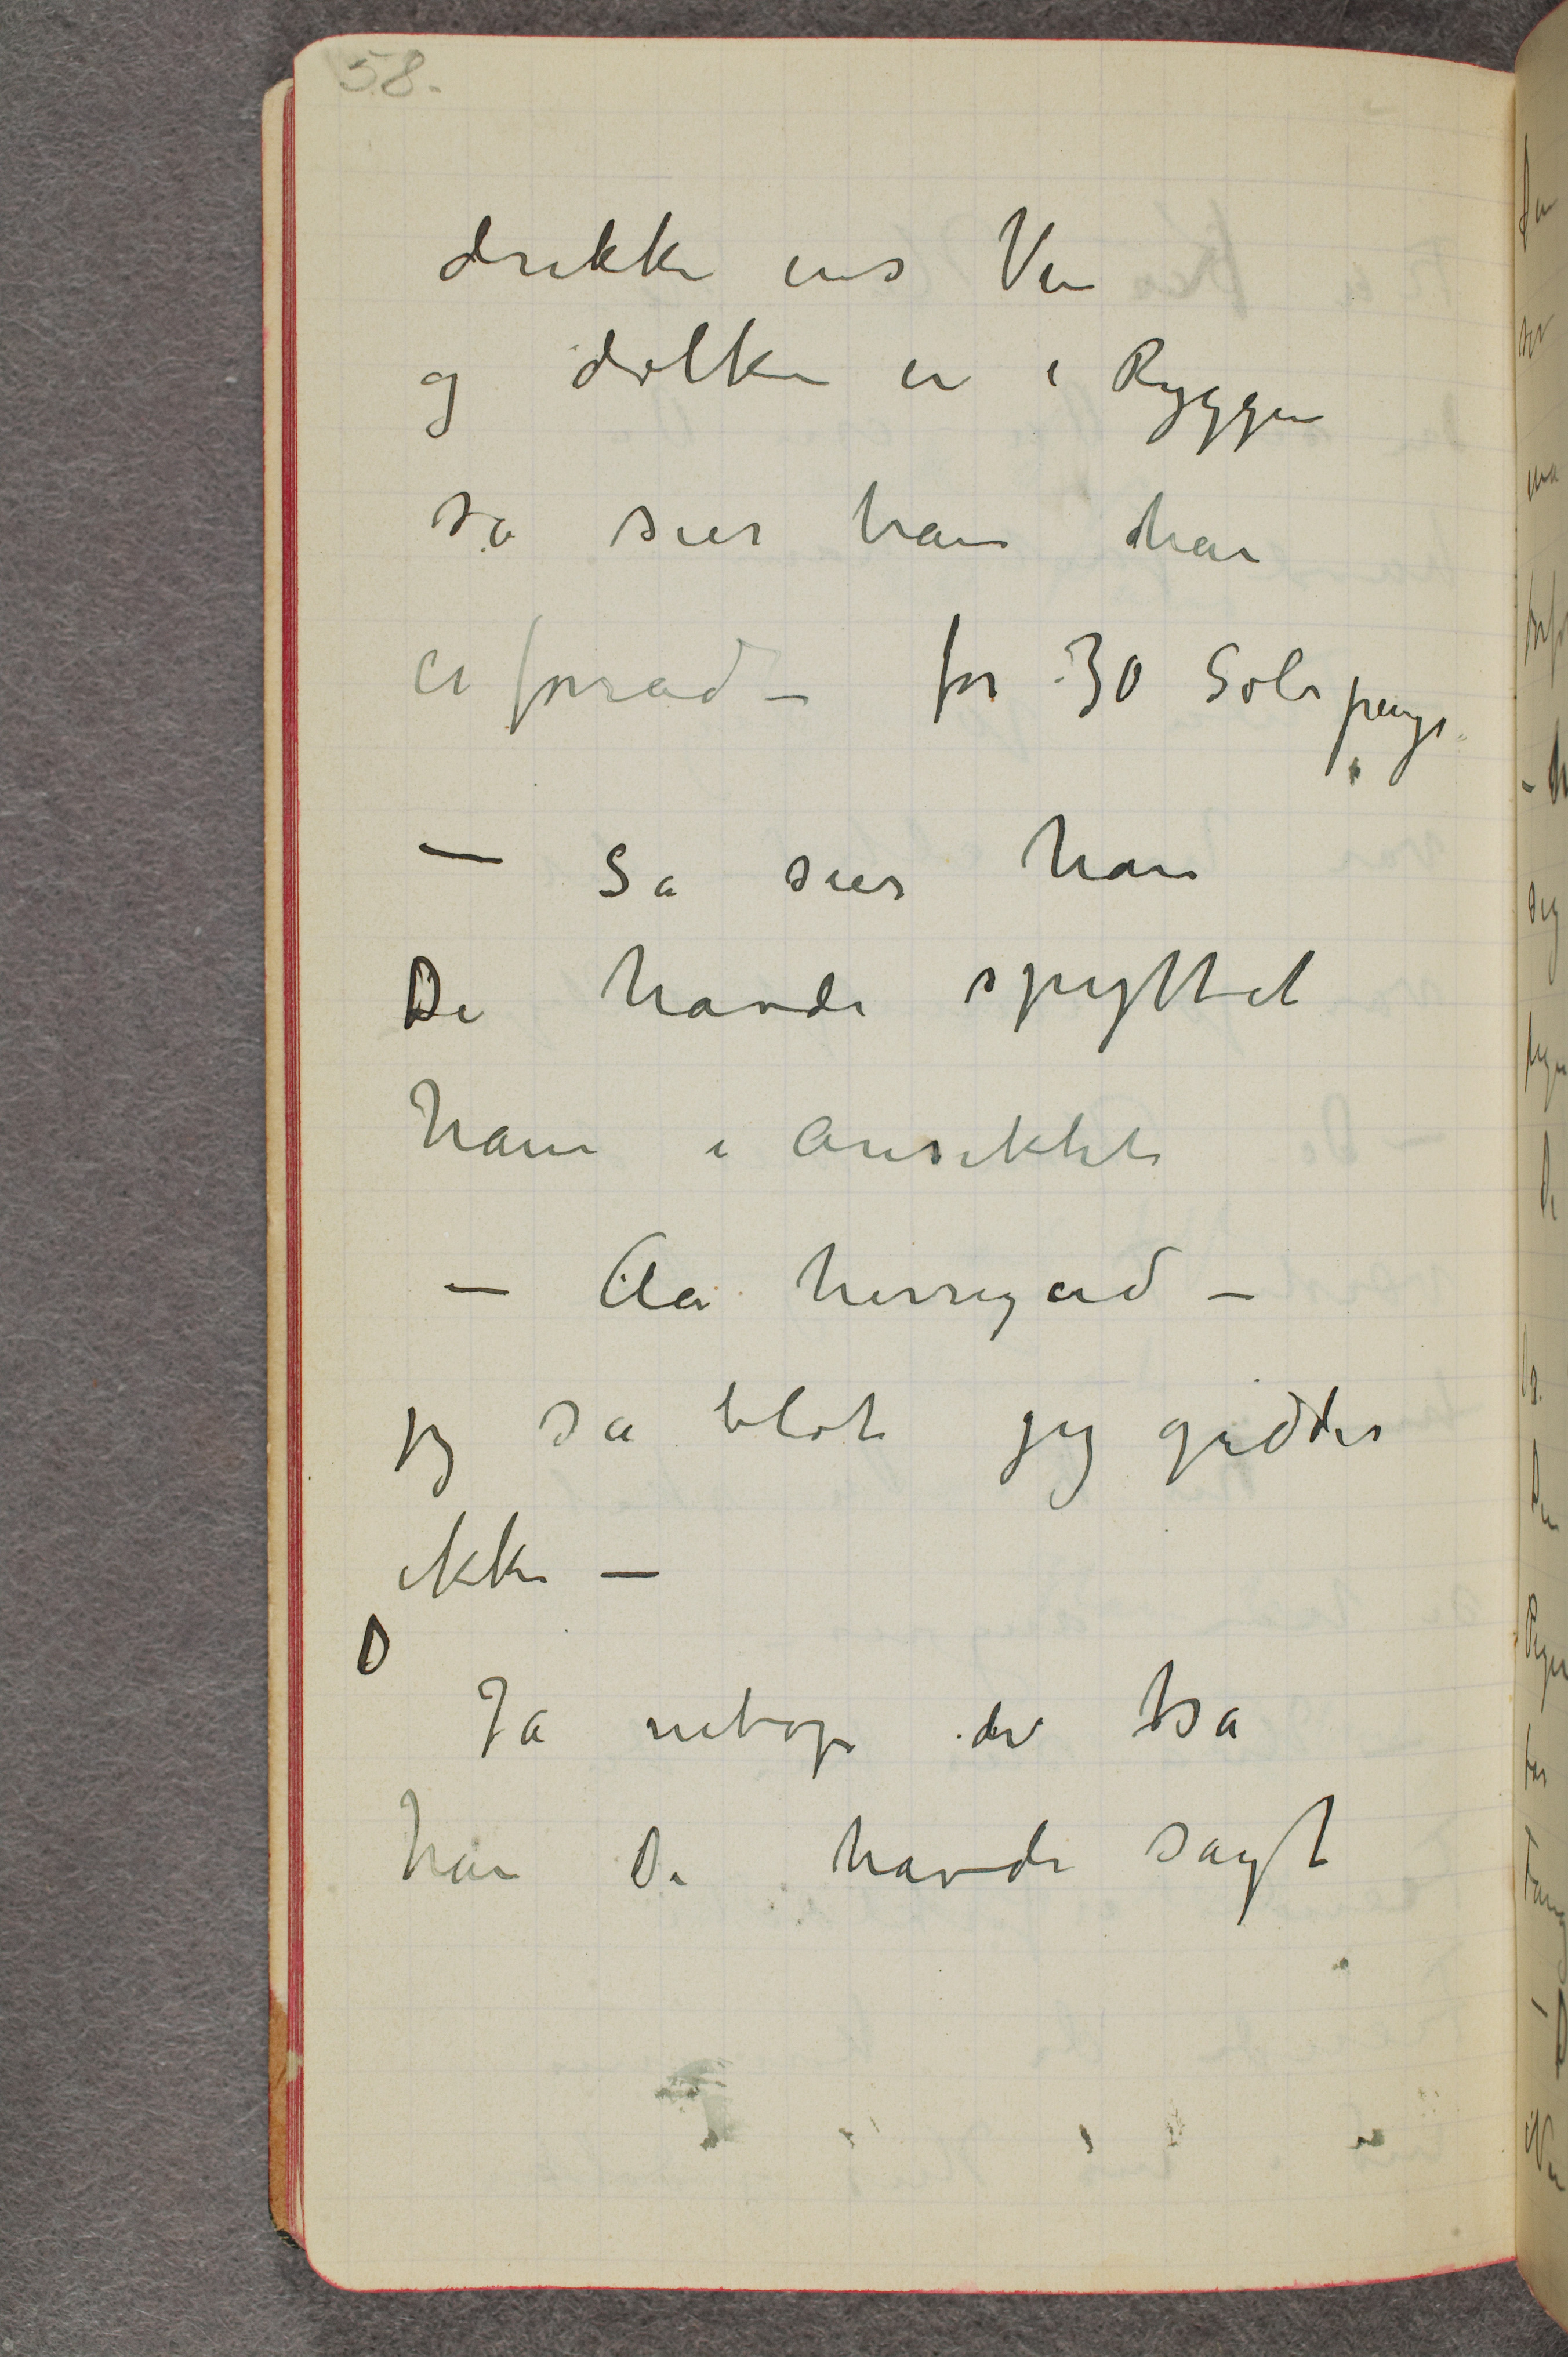 58.
drikke ens Vin
og dolke en i Ryggen
så sier han han
er forråd – for 30 Sølvpenge
– Så sier han
De havde spyttet
ham i ansiktet
– Aa herregud –
jeg sa blot jeg gidder
ikke –
D
Ja netop det sa
han De havde sagt